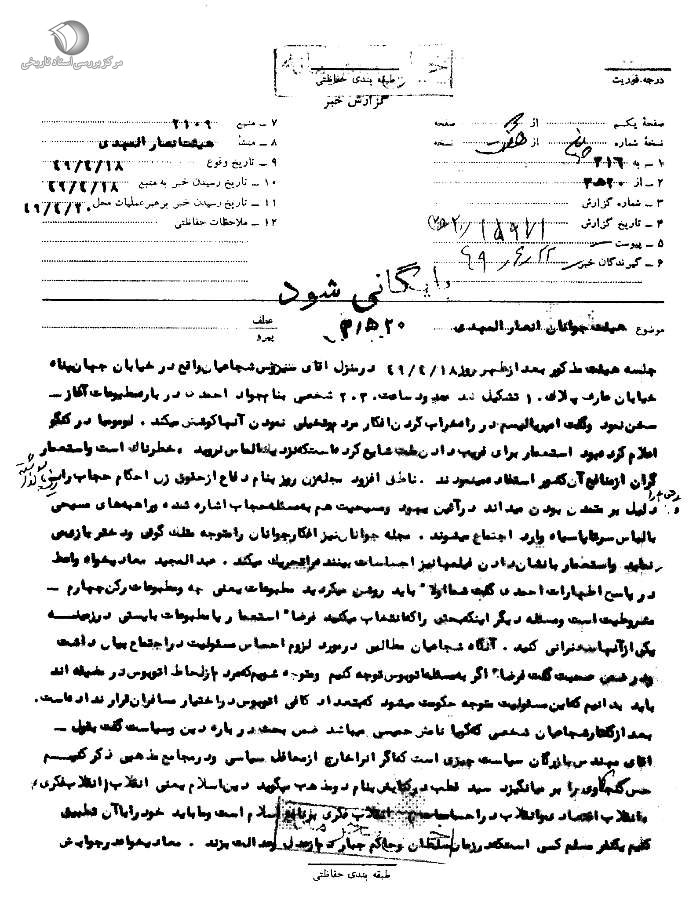 مرکز بررسی اسناد تاریخی
درجه فوریت
طبقه بندی حفاظتی
گزارش خبر
صفحهٔ یکم از صفحه
نسخهٔ شماره از هفت نسخه
۱ ـ به ۳۱۶
۲ ـ از ۳۵۲۰
۳ ـ شماره گزارش
۴ ـ تاریخ گزارش
۵ ـ پیوست
۶ ـ گیرندگان خبر
۷ ـ منبع ۲۱۰۹
۸ ـ منشأ هیئت انصار المهدی
۹ ـ تاریخ وقوع ۴۹/۴/۱۸
۱۰ ـ تاریخ رسیدن خبر به منبع ۴۹/۴/۱۸
۱۱ ـ تاریخ رسیدن خبر برهبر عملیات محل ۴۹/۴/۲۰
۱۲ ـ ملاحظات حفاظتی
بایگانی شود
موضوع هیئت جوانان انصار المهدی
عطف
پیرو
جلسه هیئت مذکور بعد از ظهر روز ۴۹/۴/۱۸ در منزل آقای شجاعیان واقع در خیابان جهان پناه
خیابان عارف پلاک ۱۰ تشکیل شد حدود ساعت شخصی بنام جواد احمدی در باره مطبوعات آغاز ـ
سخن نمود وگفت امپریالیسم در راه خراب کردن افکار مردم وتخیلی نمودن آنها کوشش میکند . لومومبا در کنگو
اعلام کرده بود استعمار برای فریب دادن ملت شایع کرده است که نزدیک الماس نروید . خطرناک است واستعمار
گران از منافع آن کشور استفاده مینمودند . ناطق افزود مجله زن روز بنام دفاع از حقوق زن احکام حجاب را
دلیل بر متمدن بودن میداند در آئین یهود ومسیحیت هم به مسئله حجاب اشاره شده وراهبه های مسیحی
با لباس سرتاپا سیاه وارد اجتماع میشوند . مجله جوانان نیز افکار جوانان را متوجه متلک گوئی ودختر بازی می
نماید واستعمار با نشان دادن فیلمها نیز احساسات بیننده را تحریک میکند . عبدالمجید معادیخواه واعظ
در پاسخ اظهارات احمدی گفت شما اولا باید روشن میکردید مطبوعات یعنی چه ومطبوعات رکن چهارم ـ
مشروطیت است ومسئله دیگر اینکه بحثی را که انتخاب میکنید فرضا استعمار یا مطبوعات بایستی در زمینه
یکی از آنها سخنرانی کنید . آنگاه شجاعیان مطالبی در مورد لزوم احساس مسئولیت در اجتماع بیان داشت
ودر ضمن صحبت گفت فرضا اگر به مسئله اتوبوس توجه کنیم ومتوجه شویم که مردم از لحاظ اتوبوس در مضیقه اند
باید بدانیم که این مسئولیت متوجه حکومت میشود که بتعداد کافی اتوبوس در اختیار مسافران قرار نداده است.
بعد از گفتار شجاعیان شخصی که گویا نامش حبیبی میباشد ضمن بحث در باره دین وسیاست گفت بقول ـ
آقای مهندس بازرگان سیاست چیزی است که اگر آنرا خارج از محافل سیاسی ودر مجامع مذهبی ذکر کنیم
حس کنجکاوی را بر میانگیزد سید قطب در کتابش بنام ومذهب میگوید دین اسلام یعنی انقلاب (انقلاب فکری،
انقلاب اقتصادی وانقلاب در احساسات انقلاب فکری برنامه اسلام است وما باید خود را با آن تطبیق
کنیم یکنفر مسلم کسی است که در زمان سلطان وحاکم جبار دم از عدل وعدالت بزند . معادیخواه در جوابش
طبقه بندی حفاظتی